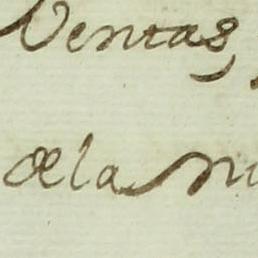 Ventas,
de la